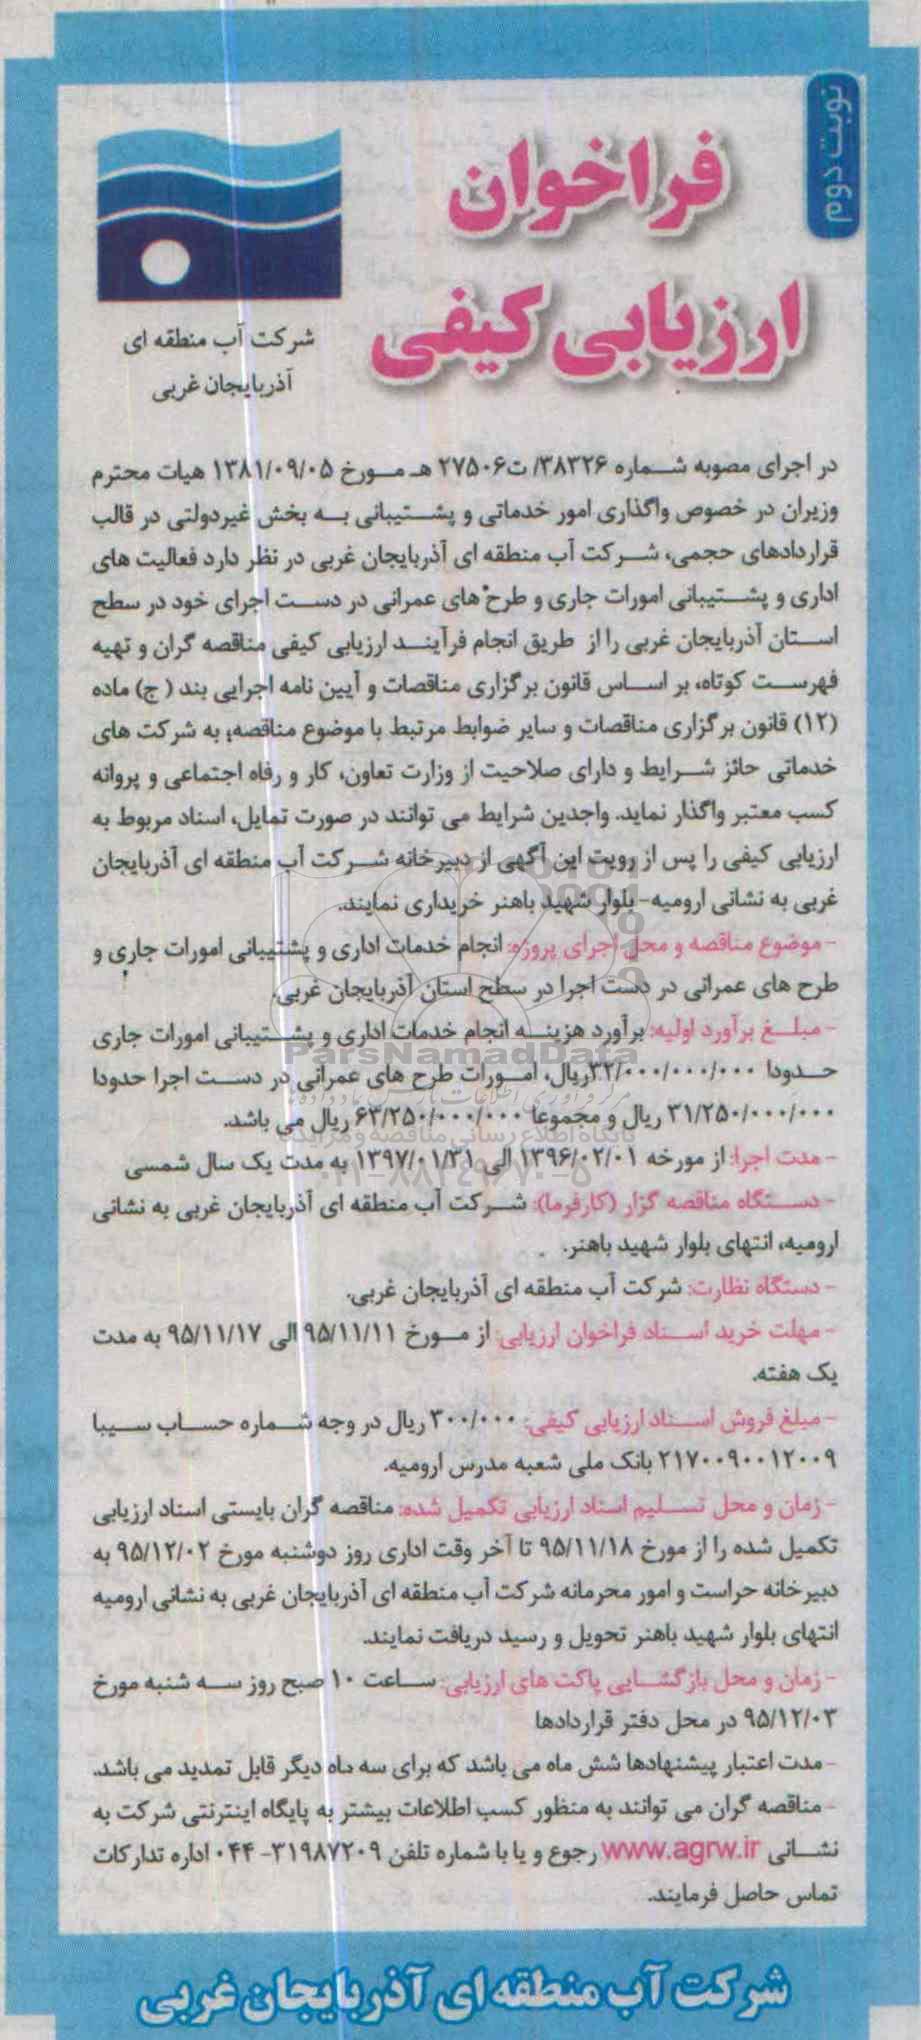 نوبت دوم
فراخوان
ارزیابی کیفی
شرکت آب منطقه ای
آذربایجان غربی
در اجرای مصوبه شماره ۳۸۳۲۶/ ت۲۷۵۰۶ هـ مورخ ۱۳۸۱/۰۹/۰۵ هیات محترم
وزیران در خصوص واگذاری امور خدماتی و پشتیبانی به بخش غیردولتی در قالب
قراردادهای حجمی، شرکت آب منطقه ای آذربایجان غربی در نظر دارد فعالیت های
اداری و پشتیبانی امورات جاری و طرح های عمرانی در دست اجرای خود در سطح
استان آذربایجان غربی را از طریق انجام فرآیند ارزیابی کیفی مناقصه گران و تهیه
فهرست کوتاه، بر اساس قانون برگزاری مناقصات و آیین نامه اجرایی بند ( ج) ماده
(۱۲) قانون برگزاری مناقصات و سایر ضوابط مرتبط با موضوع مناقصه؛ به شرکت های
خدماتی حائز شرایط و دارای صلاحیت از وزارت تعاون، کار و رفاه اجتماعی و پروانه
کسب معتبر واگذار نماید. واجدین شرایط می توانند در صورت تمایل، اسناد مربوط به
ارزیابی کیفی را پس از رویت این آگهی از دبیرخانه شرکت آب منطقه ای آذربایجان
غربی به نشانی ارومیه- بلوار شهید باهنر خریداری نمایند.
- موضوع مناقصه و محل اجرای پروژه: انجام خدمات اداری و پشتیبانی امورات جاری و
طرح های عمرانی در دست اجرا در سطح استان آذربایجان غربی.
- مبلغ برآورد اولیه: برآورد هزینه انجام خدمات اداری و پشتیبانی امورات جاری
حدودا ۳۲/۰۰۰/۰۰۰/۰۰۰ریال، امورات طرح های عمرانی در دست اجرا حدودا
۳۱/۲۵۰/۰۰۰/۰۰۰ ریال و مجموعا ۶۳/۲۵۰/۰۰۰/۰۰۰ ریال می باشد.
- مدت اجرا: از مورخه ۱۳۹۶/۰۲/۰۱ الی ۱۳۹۷/۰۱/۳۱ به مدت یک سال شمسی
- دستگاه مناقصه گزار (کارفرما): شرکت آب منطقه ای آذربایجان غربی به نشانی
ارومیه، انتهای بلوار شهید باهنر.
- دستگاه نظارت: شرکت آب منطقه ای آذربایجان غربی.
- مهلت خرید اسناد فراخوان ارزیابی: از مورخ ۹۵/۱۱/۱۱ الی ۹۵/۱۱/۱۷ به مدت
یک هفته.
- مبلغ فروش اسناد ارزیابی کیفی: ۳۰۰/۰۰۰ ریال در وجه شماره حساب سیبا
۲۱۷۰۰۹۰۰۱۲۰۰۹ بانک ملی شعبه مدرس ارومیه.
- زمان و محل تسلیم اسناد ارزیابی تکمیل شده: مناقصه گران بایستی اسناد ارزیابی
تکمیل شده را از مورخ ۹۵/۱۱/۱۸ تا آخر وقت اداری روز دوشنبه مورخ ۹۵/۱۲/۰۲ به
دبیرخانه حراست و امور محرمانه شرکت آب منطقه ای آذربایجان غربی به نشانی ارومیه
انتهای بلوار شهید باهنر تحویل و رسید دریافت نمایند.
- زمان و محل بازگشایی پاکت های ارزیابی: ساعت ۱۰ صبح روز سه شنبه مورخ
۹۵/۱۲/۰۳ در محل دفتر قراردادها
- مدت اعتبار پیشنهادها شش ماه می باشد که برای سه ماه دیگر قابل تمدید می باشد.
- مناقصه گران می توانند به منظور کسب اطلاعات بیشتر به پایگاه اینترنتی شرکت به
نشانی www.agrw.ir رجوع و یا با شماره تلفن ۳۱۹۸۷۲۰۹- ۰۴۴ اداره تدارکات
تماس حاصل فرمایند.
شرکت آب منطقه ای آذربایجان غربی
ParsNamadData
پایگاه اطلاع رسانی مناقصه و مزایده
۰۲۱-۸۸۳۴۹۶۷۰-۵